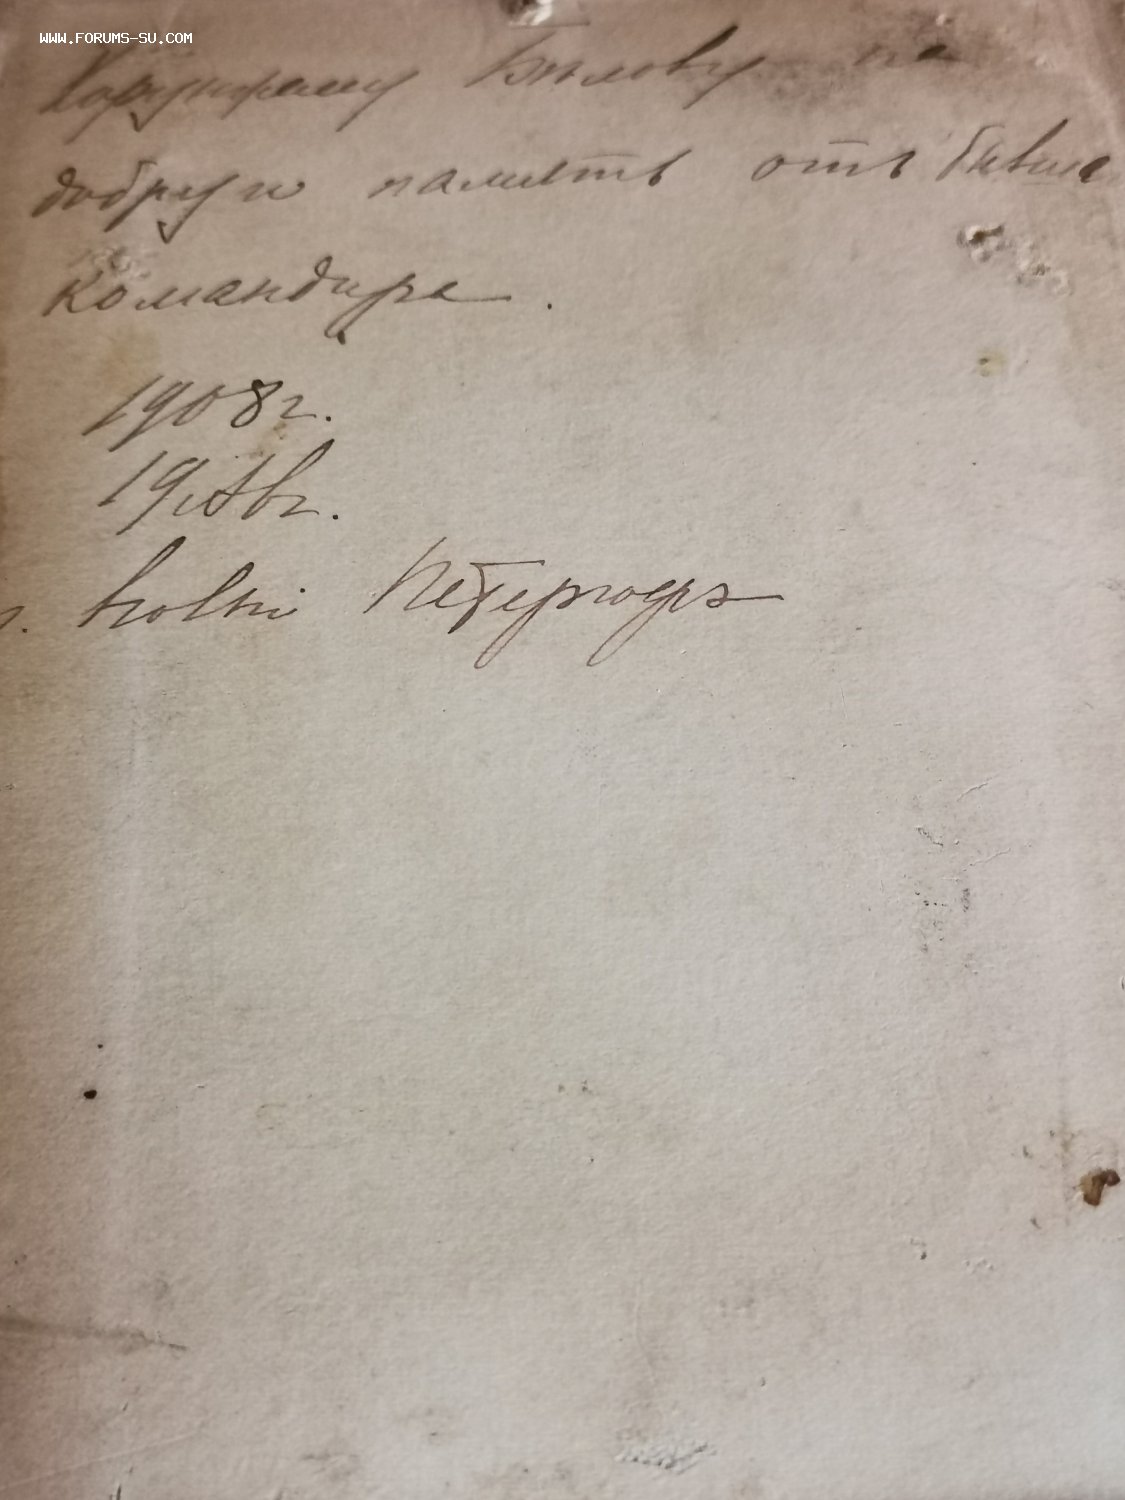 WWW.FORUMS-SU.COM
Хорунжему Бѣлову на
добрую память отъ бывша
командира.
1908г.
19 Авг.
г. Новый Петергофъ